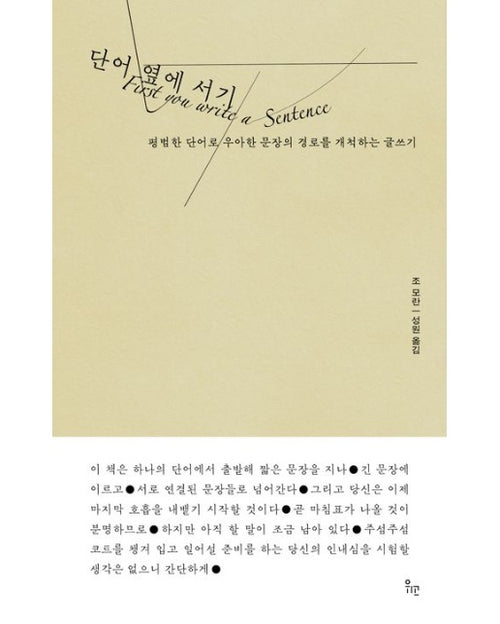 단어 옆에 서기
First you write a Sentence
평범한 단어로 우아한 문장의 경로를 개척하는 글쓰기
조 모란 | 성원 옮김
이 책은 하나의 단어에서 출발해 짧은 문장을 지나●긴 문장에
이르고●서로 연결된 문장들로 넘어간다●그리고 당신은 이제
마지막 호흡을 내뱉기 시작할 것이다●곧 마침표가 나올 것이
분명하므로●하지만 아직 할 말이 조금 남아 있다●주섬주섬
코트를 챙겨 입고 일어설 준비를 하는 당신의 인내심을 시험할
생각은 없으니 간단하게●
위고